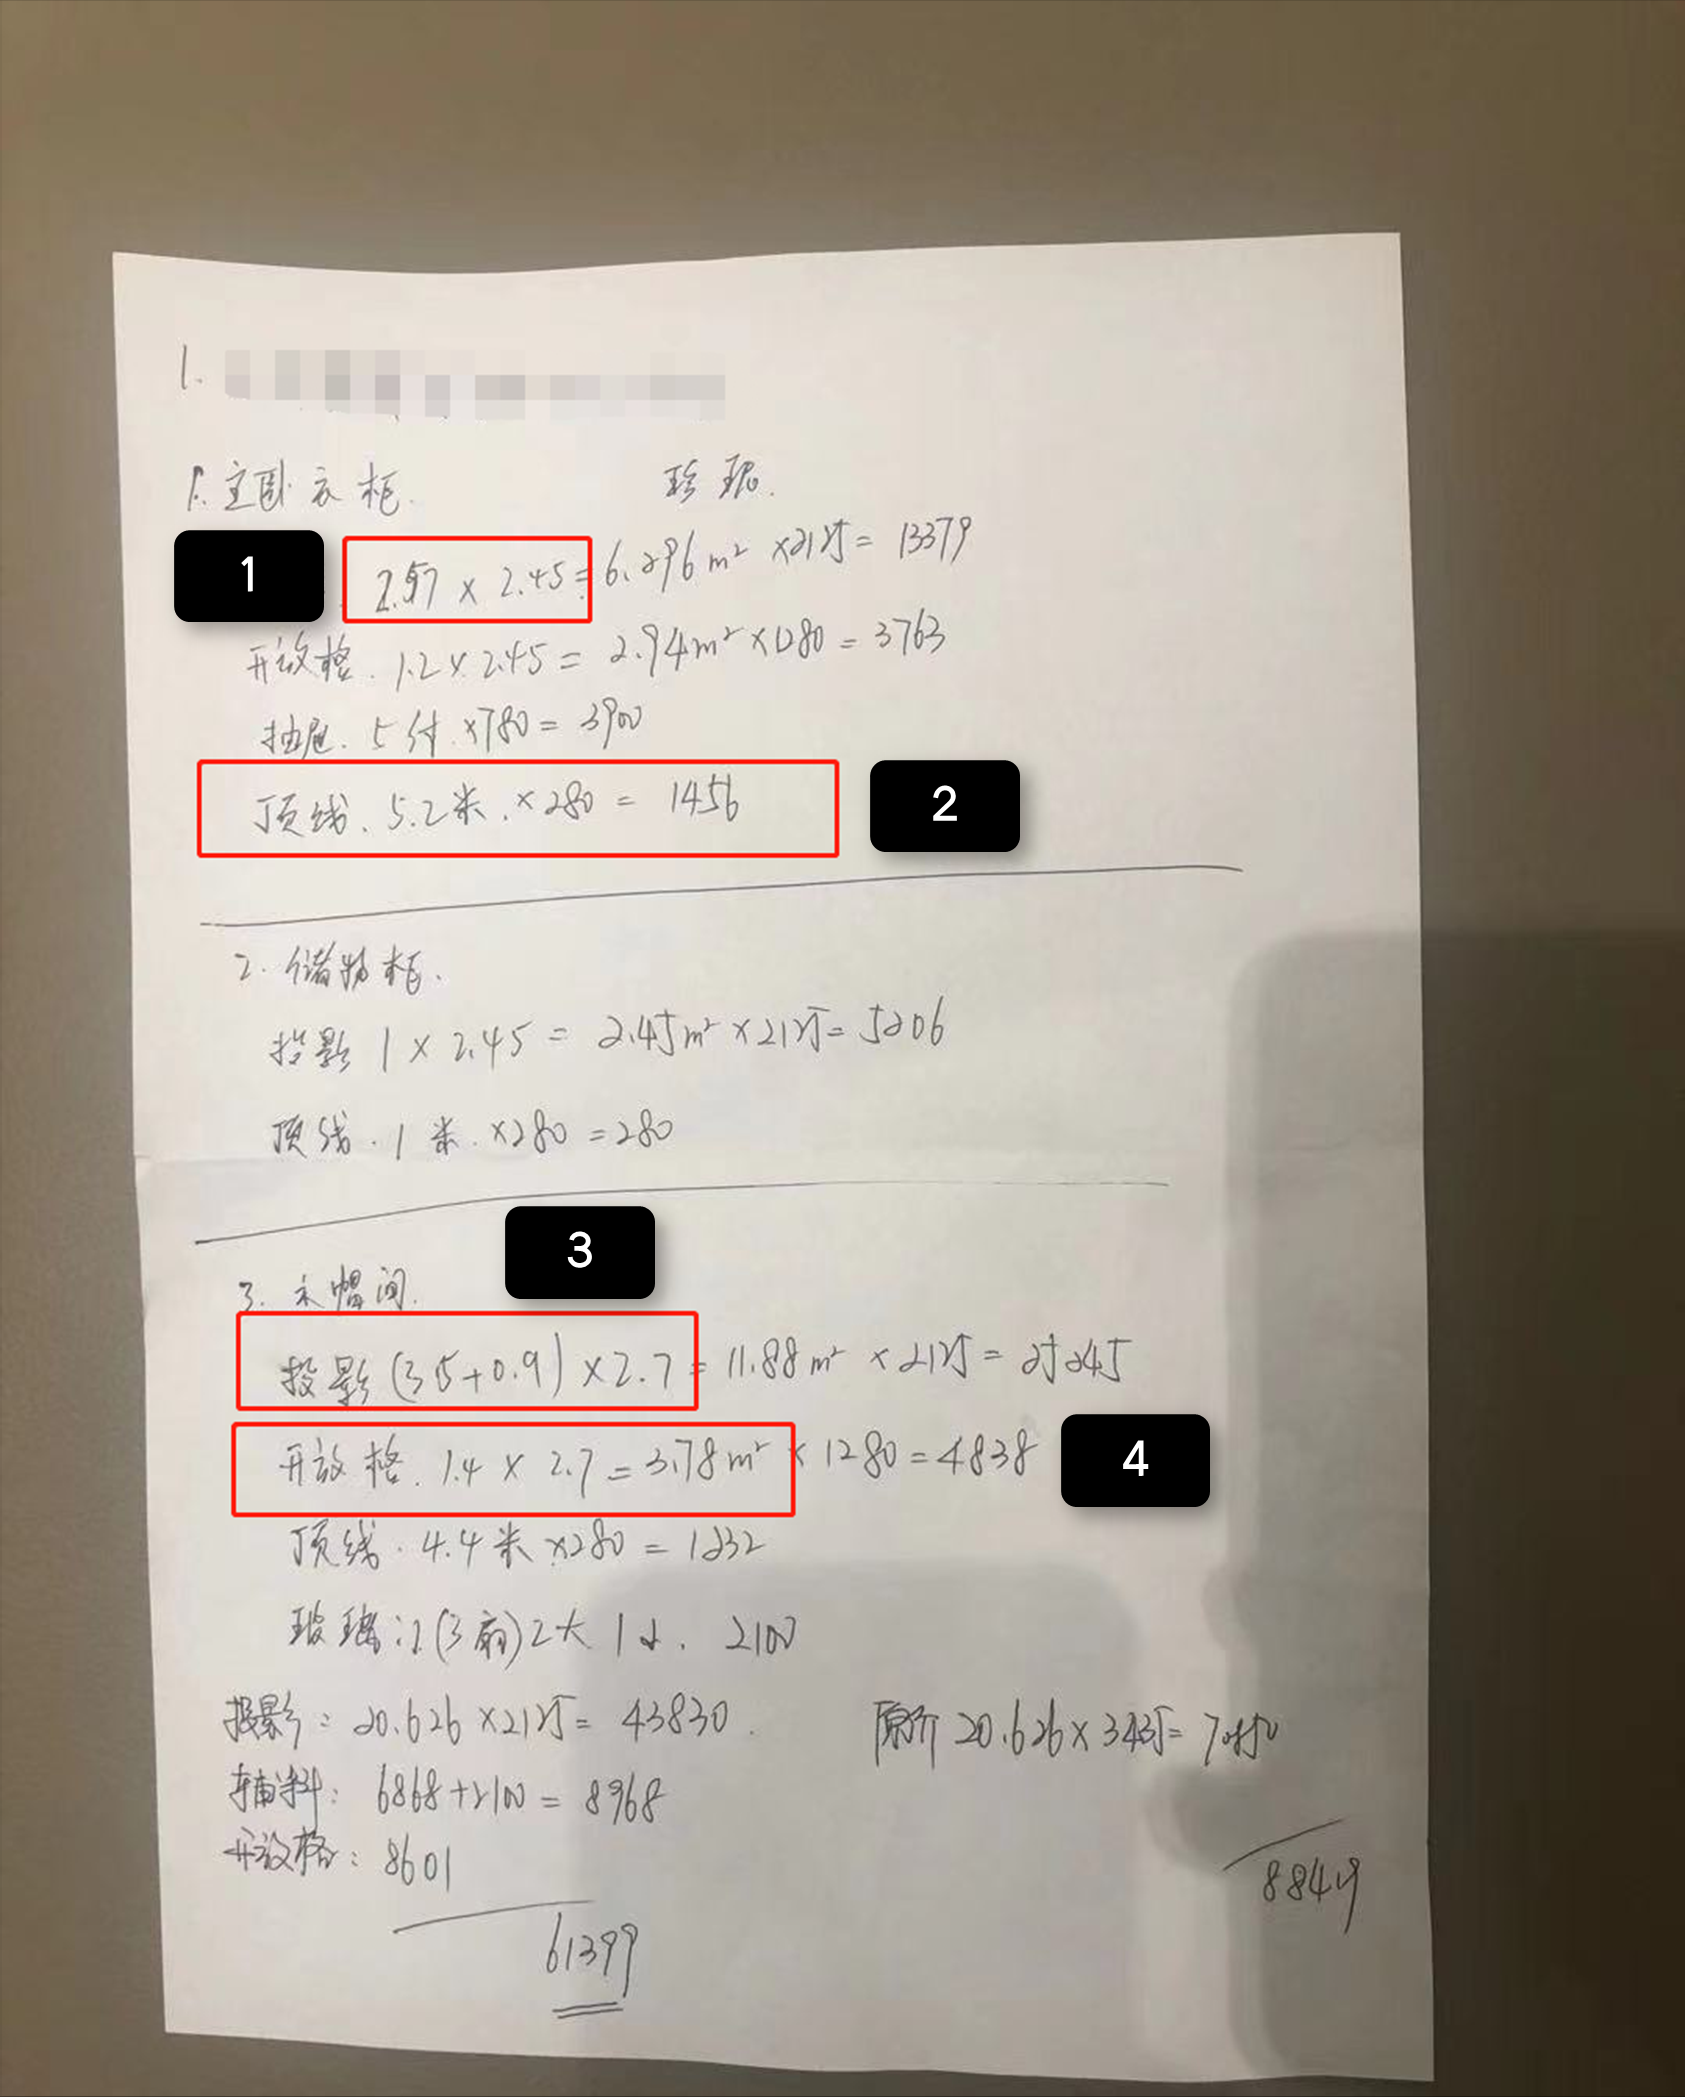 1.
1. 主卧衣柜. 珍琅.
1
2.57 × 2.45 = 6.296m² ×2125 = 13379
开放格. 1.2 × 2.45 = 2.94m² ×1280 = 3763
抽屉. 5付. ×780 = 3900
顶线. 5.2米. ×280 = 1456
2
2. 储物柜.
投影 1 × 2.45 = 2.45m² ×2125 = 5206
顶线. 1米. ×280 = 280
3
3. 衣帽间.
投影 (3.5+0.9) ×2.7 = 11.88m² ×2125 = 25245
开放格. 1.4 × 2.7 = 3.78m² × 1280 = 4838
4
顶线. 4.4米 ×280 = 1232
玻璃门 (3扇) 2大 1小. 2100
投影: 20.626 ×2125 = 43830. 原价 20.626 × 3435 =
辅料: 6868+2100 = 8968
开放格: 8601
61399